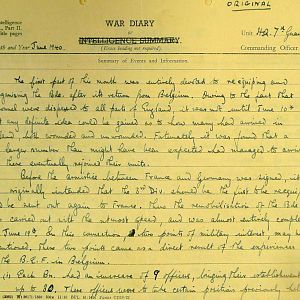 ORIGINAL
WAR DIARY
or
INTELLIGENCE SUMMARY.
(Erase heading not required).
Intelligence
Part II.
title pages
Month and Year June 1940.
Unit H.Q. 7th Guards
Commanding Officer
Summary of Events and Information.
The first part of the month was entirely devoted to re-equiping and
reorganising the Bde. after its return from Belgium. Owing to the fact that
were dispersed to all parts of England, it was not until June 10th
that any definite idea could be gained as to how many had arrived in
England both wounded and unwounded. Fortunately it was found that a
larger number than might have been expected had managed to arrive
there eventually rejoined their units.
Before the armistice between France and Germany was signed, it
originally intended that the 3rd Div. should be the first to be reequipped
be sent out again to France. Thus the remobilisation of the Bde.
carried out with the utmost speed, and was almost entirely complete
June 19th. In this connection two points of military interest may be
mentioned. These two points came as a direct result of the experiences
the B.E.F. in Belgium.
(i) Each Bn. had an increase of 9 officers, bringing their establishment
up to 30. These officers were to take certain positions previously held